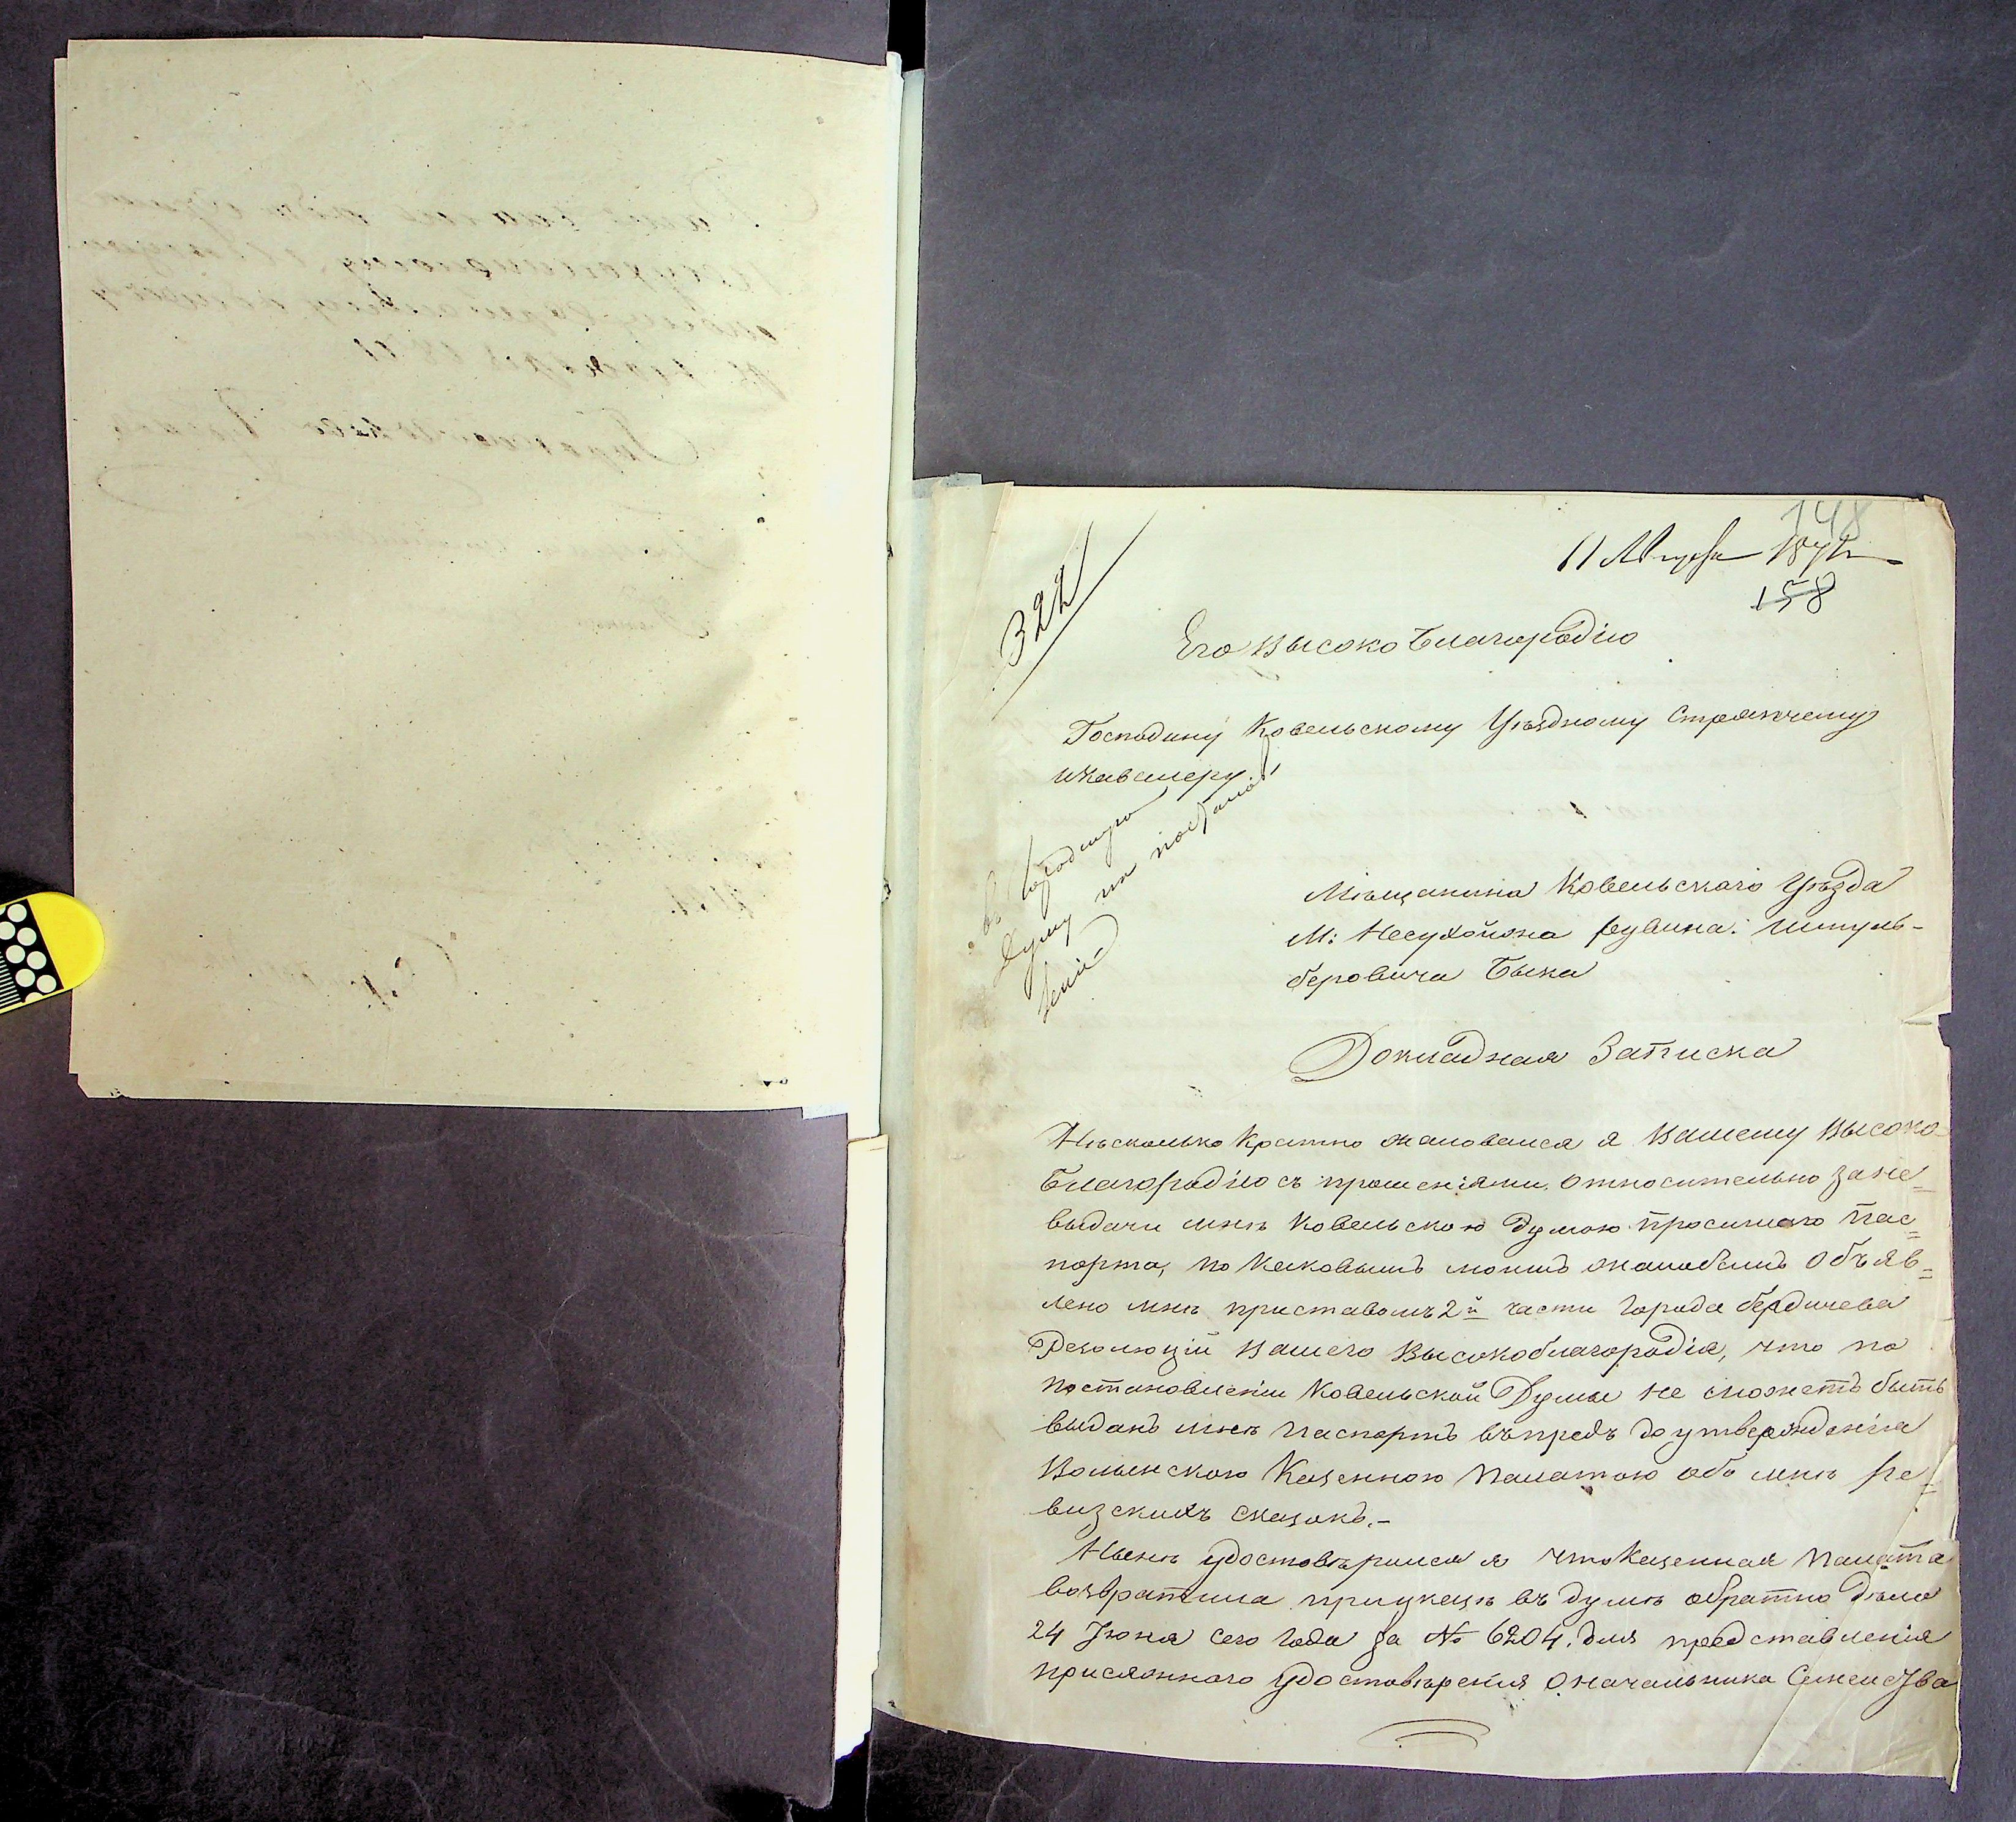 148
11 Августа 1871
158
322
Его ВысокоБлагородію
Господину Ковельскому Уѣздному Стряпчему
и Кавалеру
въ городскую
думу на постанов
леніе
Мѣщанина Ковельскаго Уѣзда
М: Несухойжа Рувина
беровича Быка
Докладная Записка
Нѣсколько кратно жаловался я Вашему Высоко-
Благородію съ прошеніями относительно за не=
выдачи мнѣ Ковельскою Думою просимаго пас=
порта, по каковымъ моимъ жалобамъ объяв=
лено мнѣ приставомъ 2й части города Бердичева
Резолюціи Вашего Высокоблагородія, что по
постановленіи Ковельской Думы не можетъ быть
выданъ мнѣ паспортъ въпредъ до утвержденія
Волынскою Казенною Палатою обо мнѣ ре=
визскихъ сказокъ.-
Нынѣ удостовѣрился я что Казенная Палата
возвратила при указѣ въ думѣ обратно дѣло
24 Іюня сего года за № 6204. для представленія
присяжнаго удостовѣренія о начальника Семейства